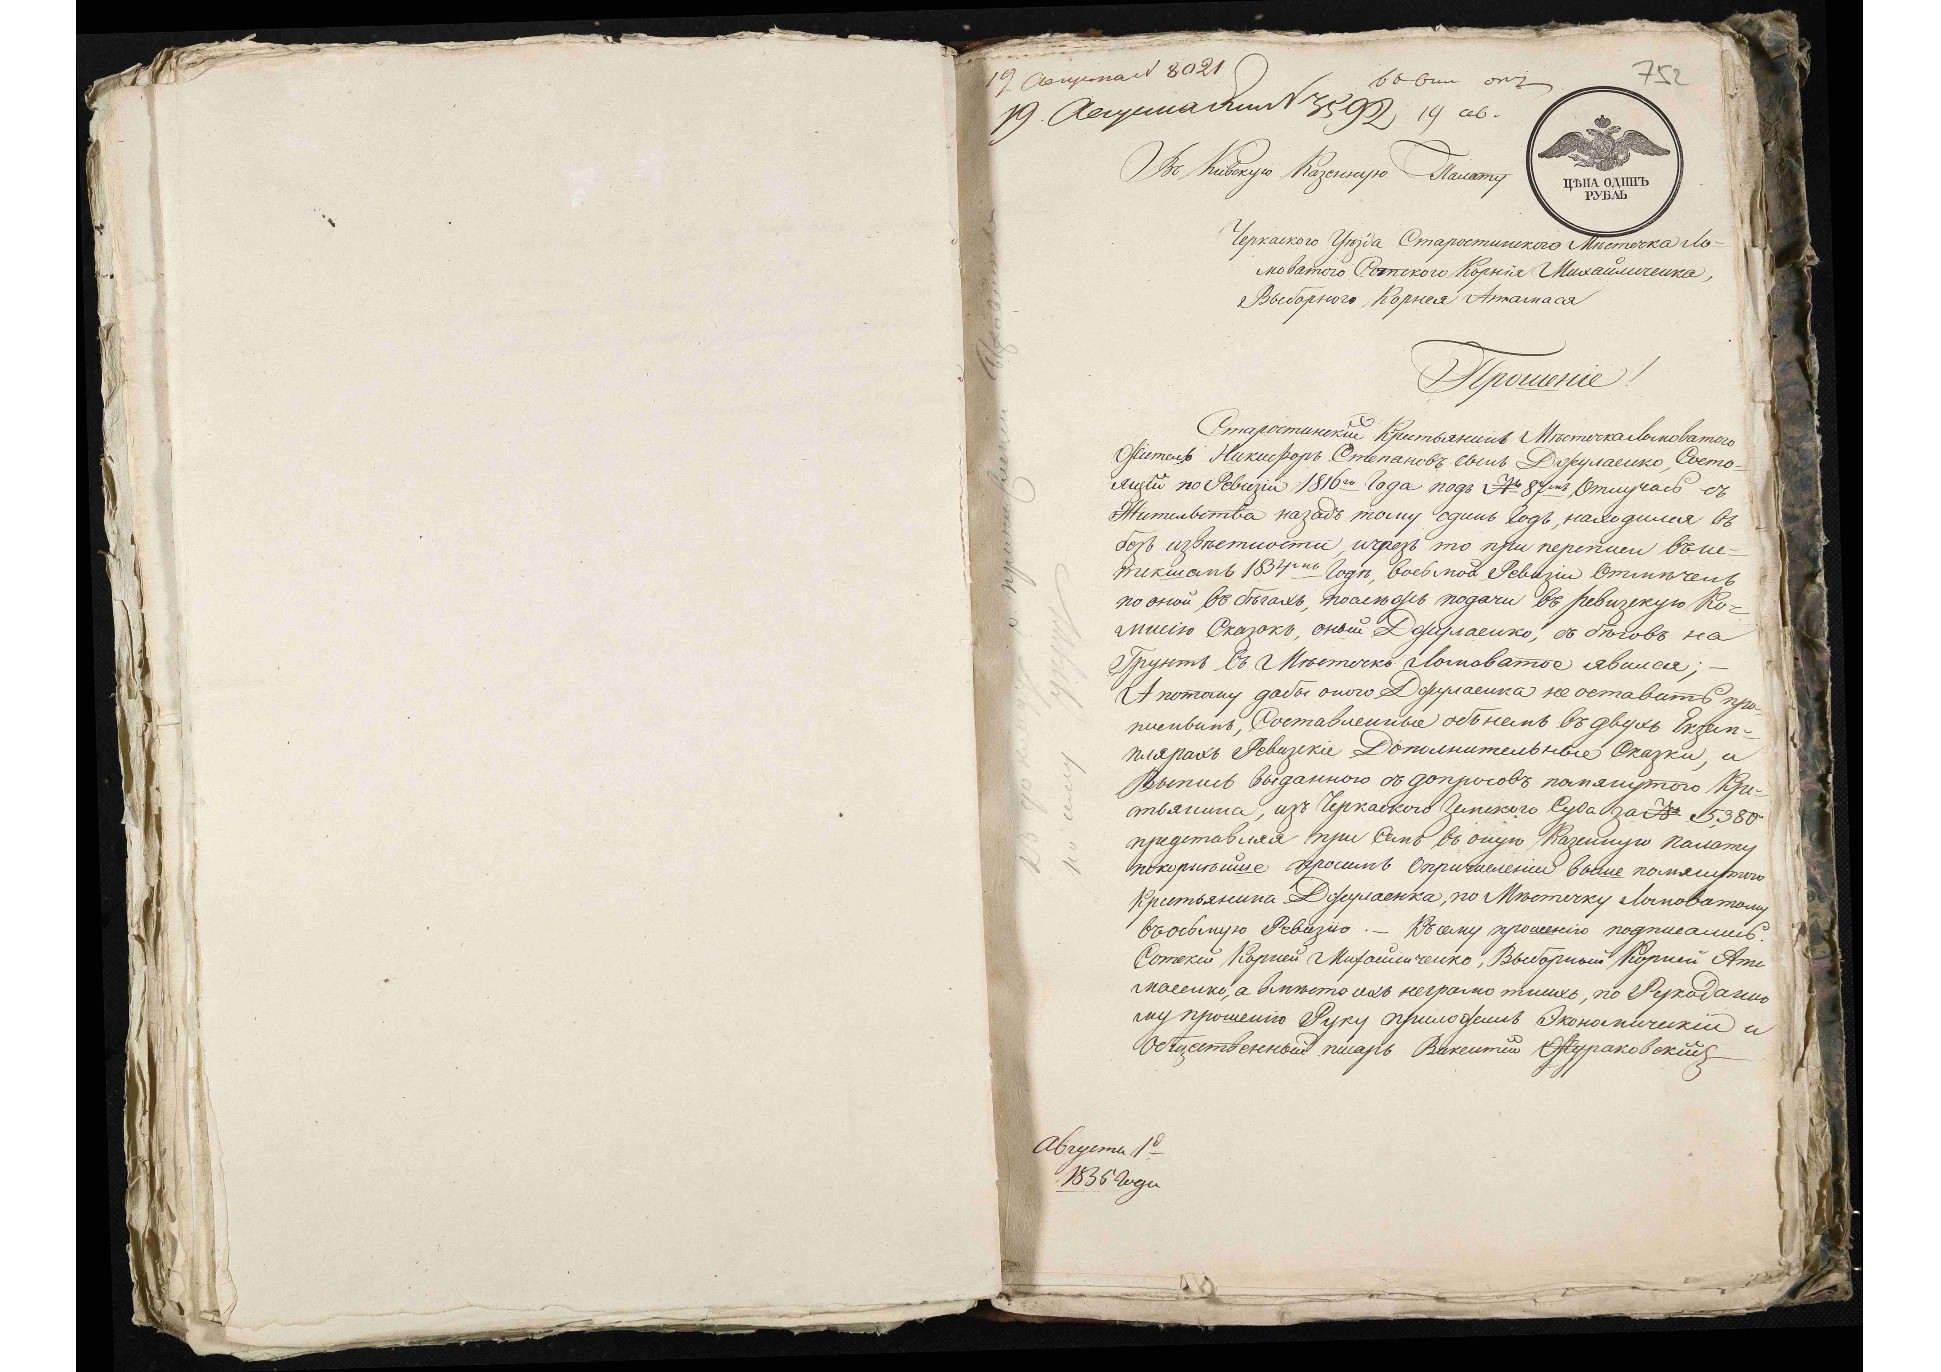 19 Августа № 8021
19. Августа № 3592 19 ав.
752
ЦѢНА ОДИНЪ
РУБЛЬ
Въ Кіевскую Казенную Палату
Черкаского Уѣзда Старостинского Мѣстечка Ло-
моватого Сотского Корнія Михайличенка,
Выборного Корнея Атамася
Прошеніе!
Старостинскій Крестьянинъ Мѣстечка Ломоватого
Житель Никифоръ Степановъ сынъ Джулаенко, Состо-
ящій по Ревизіи 1816го Года подъ № 87мъ, Отлучась съ
Жительства назадъ тому одинъ Годъ, находился въ
безъ извѣстности, и чрезъ то при переписи въ ис-
текшемъ 1834мъ Годѣ, восьмой Ревизіи Отмѣченъ
по оной въ бѣгахъ, послѣжъ подачи въ ревизскую Ко-
мисію Сказокъ, оный Джулаенко, съ бѣговъ на
Грунтъ въ Мѣстечко Ломоватое явился; —
А потому дабы оного Джулаенка не оставить про-
писнымъ, Составленные объ немъ въ двухъ Екзем-
плярахъ Ревизскіе Дополнительные Сказки, и
Выпись выданного съ допросовъ помянутого Кре-
стьянина, изъ Черкаского Земского Суда за № 5,380
представляя при семъ въ оную Казенную палату
покорнѣйше просимъ о причисленіи выше помянутого
Крестьянина Джулаенка, по Мѣстечку Ломоватому
въ осьмую Ревизію. — Къ сему прошенію подписались:
Сотскій Корней Михайличенко, Выборный Корней Ата
масенко, а вмѣсто ихъ неграмотныхъ, по Рукоданно
му прошенію Руку приложилъ Экономическій и
Общественный писарь Викентій Жураковскій
Августа 18
1836 Года